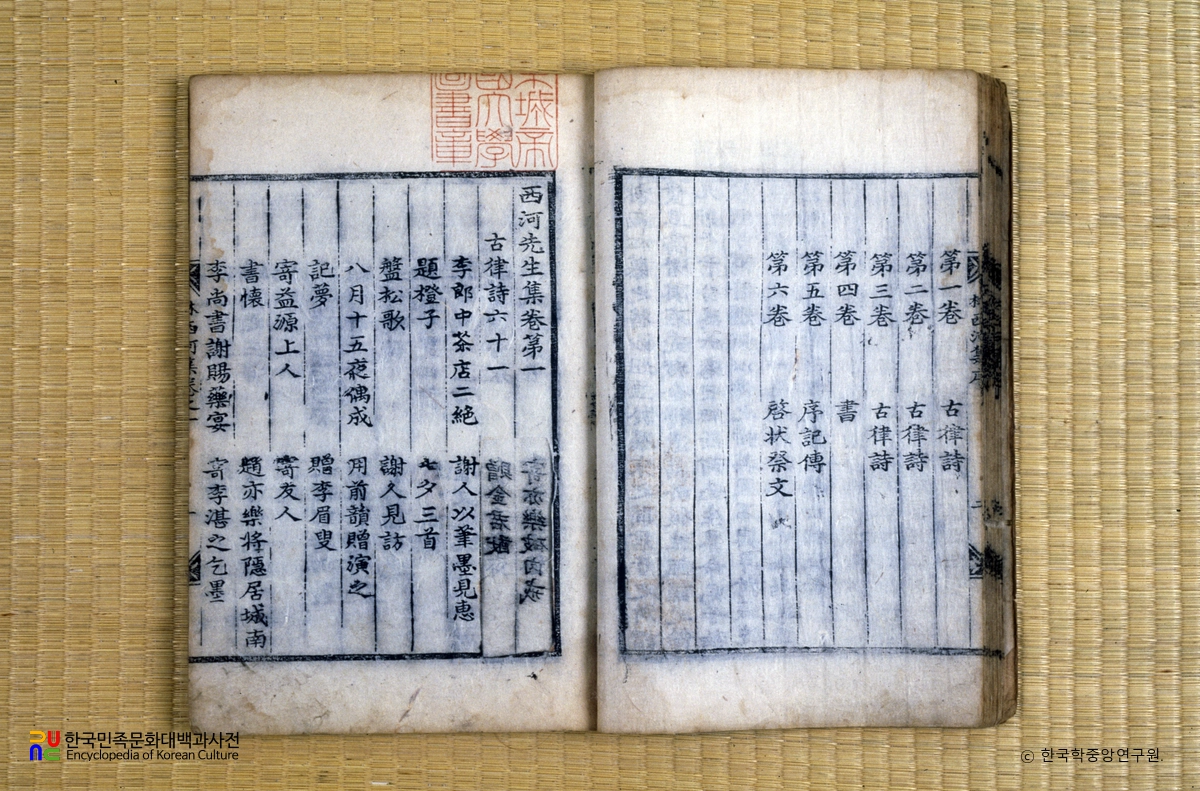 第一卷 古律詩
第二卷 古律詩
第三卷 古律詩
第四卷 書
第五卷 序記傳
第六卷 啓狀祭文
西河先生集卷第一
古律詩六十一
李郎中茶店二絶 謝人以筆墨見惠
題橙子 七夕三首
盤松歌 謝人見訪
八月十五夜偶成 用前韻贈演之
記夢 贈李眉叟
寄益源上人 寄友人
書懷 題亦樂將隱居城南
李尚書謝賜藥宴 寄李湛之乞墨
한국민족문화대백과사전
Encyclopedia of Korean Culture
© 한국학중앙연구원.